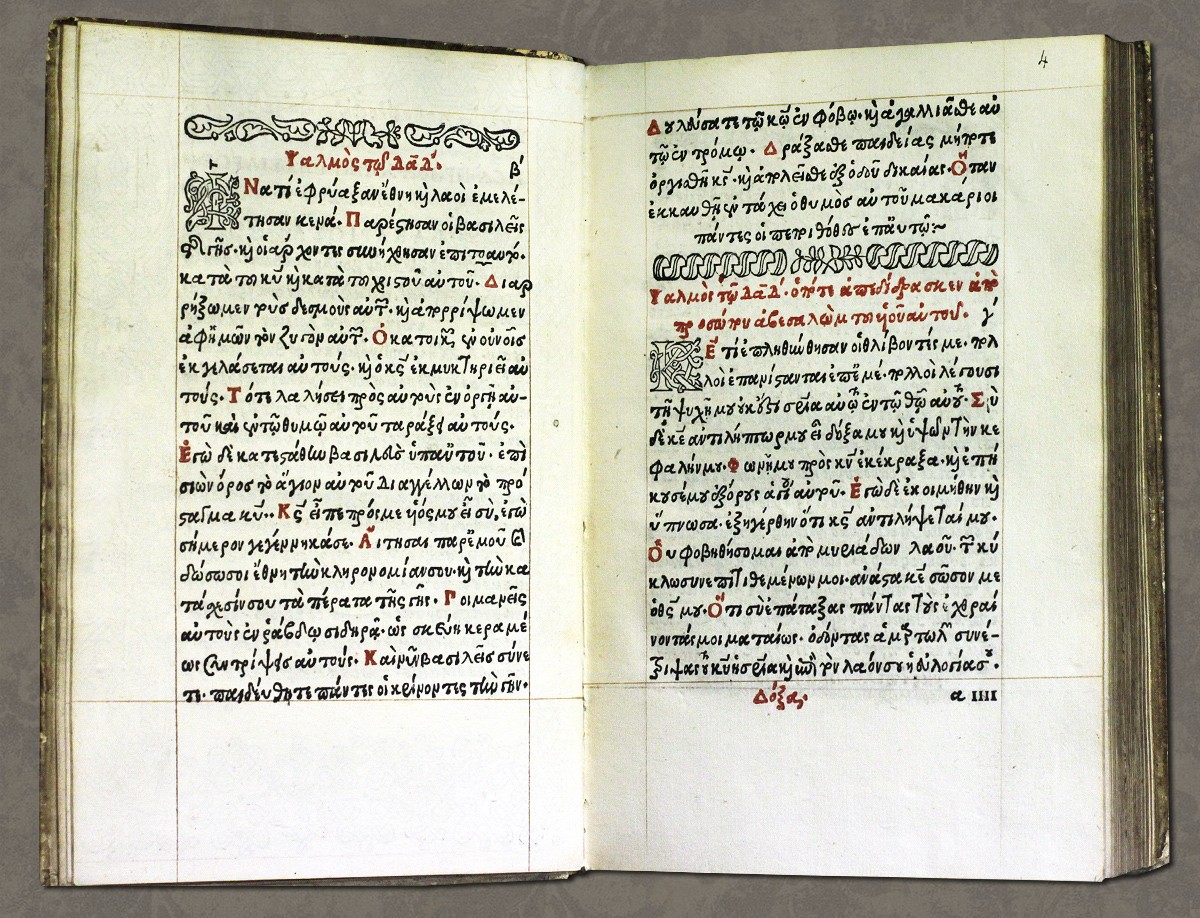 Ψαλμὸς τῷ Δαδ̄. β´
ἹΝατί ἐφρύαξαν ἔθνη κ̀ λαοὶ ἐμελέ-
τησαν κενά. Παρέςησαν οἱ βασιλεῖς
τῆς γῆς. κ̀ οἱ ἄρχοντες συνήχθησαν ἐπιτοαυτό.
κατὰ τοῦ κῡ κ̀ κατὰ τοῦ χριςοῦ αὐτοῦ. Διαρ
ρήξωμεν τοὺς δεσμοὺς αὐτ͂. κ̀ ἀπορρίψωμεν
ἀφ' ἡμῶν τὸν ζυγὸν αὐτ͂. Ὁ κατοικῶν ἐν οὐνοῖς
ἐκγελάσεται αὐτούς. κ̀ ὁ κς̄ ἐκμυκτηριεῖ αὐ
τούς. Τότε λαλήσει πρὸς αὐτοὺς ἐν ὀργῇ αὐ-
τοῦ καὶ ἐν τῷ θυμῷ αὐτοῦ ταράξει αὐτούς.
Ἐγὼ δὲ κατεςάθην βασιλεὺς ὑπ' αὐτοῦ. ἐπὶ
σιὼν ὄρος τὸ ἅγιον αὐτοῦ Διαγγέλλων τὸ πρό
ςαγμα κῡ. Κς̄ εἶπε πρός με ὑιός μου εἶ σὺ, ἐγὼ
σήμερον γεγέννηκά σε. Αἴτησαι παρ' ἐμοῦ κ̀
δώσω σοι ἔθνη τὴν κληρονομίαν σου. κ̀ τὴν κα
τάχεσίν σου τὰ πέρατα τῆς γῆς. Ποιμανεῖς
αὐτοὺς ἐν ῥάβδῳ σιδηρᾷ. ὡς σκεύη κεραμέ
ως συντρίψεις αὐτούς. Καὶ νῦν βασιλεῖς σύνε
τε. παιδεύθητε πάντες οἱ κρίνοντες τὴν γῆν.
4
Δουλεύσατε τῷ κω̄ ἐν φόβῳ. κ̀ ἀγαλλιᾶσθε αὐ
τῷ ἐν τρόμῳ. Δράξασθε παιδείας μήποτε
ὀργισθῇ κς̄. κ̀ ἀπολεῖσθε ἐξ ὁδοῦ δικαίας. Ὅταν
ἐκκαυθῇ ἐν τάχει ὁ θυμὸς αὐτοῦ μακάριοι
πάντες οἱ πεποιθότες ἐπ' αὐτῷ:~
Ψαλμὸς τῷ Δαδ̄. ὁπότε ἀπεδίδρασκεν ἀπὸ
προσώπου ἀβεσαλὼμ τοῦ ὑιοῦ αὐτοῦ. γ´
ΚΕ̄ τί ἐπληθύνθησαν οἱ θλίβοντές με. πολ
λοὶ ἐπανίςανται ἐπ' ἐμέ. πολλοὶ λέγουσι
τῇ ψυχῇ μου οὐκ ἔςι σωτηρία αὐτῷ ἐν τῷ θῷ αὐτοῦ. Σὺ
δὲ κε̄ ἀντιλήπτωρ μου εἶ δόξα μου κ̀ ὑψῶν τὴν κε
φαλήν μου. Φωνῇ μου πρὸς κν̄ ἐκέκραξα. κ̀ ἐπή
κουσέ μου ἐξ ὄρους ἁγίου αὐτοῦ. Ἐγὼ δὲ ἐκοιμήθην κ̀
ὕπνωσα. ἐξηγέρθην ὅτι κς̄ ἀντιλήψεταί μου.
Οὐ φοβηθήσομαι ἀπὸ μυριάδων λαοῦ. τ͂ κύ
κλω συνεπιτιθεμένων μοι. ἀνάςα κε̄ σῶσον με
ὁ θς̄ μου. Ὅτι σὺ ἐπάταξας πάντας τοὺς ἐχθραί
νοντάς μοι ματαίως. ὀδόντας ἁμαρτωλῶν συνέ-
τριψας τοῦ κῡ ἡ σωτηρία κ̀ ἐπὶ τὸν λαόν σου ἡ εὐλογία σου.
Δόξα. α IIII